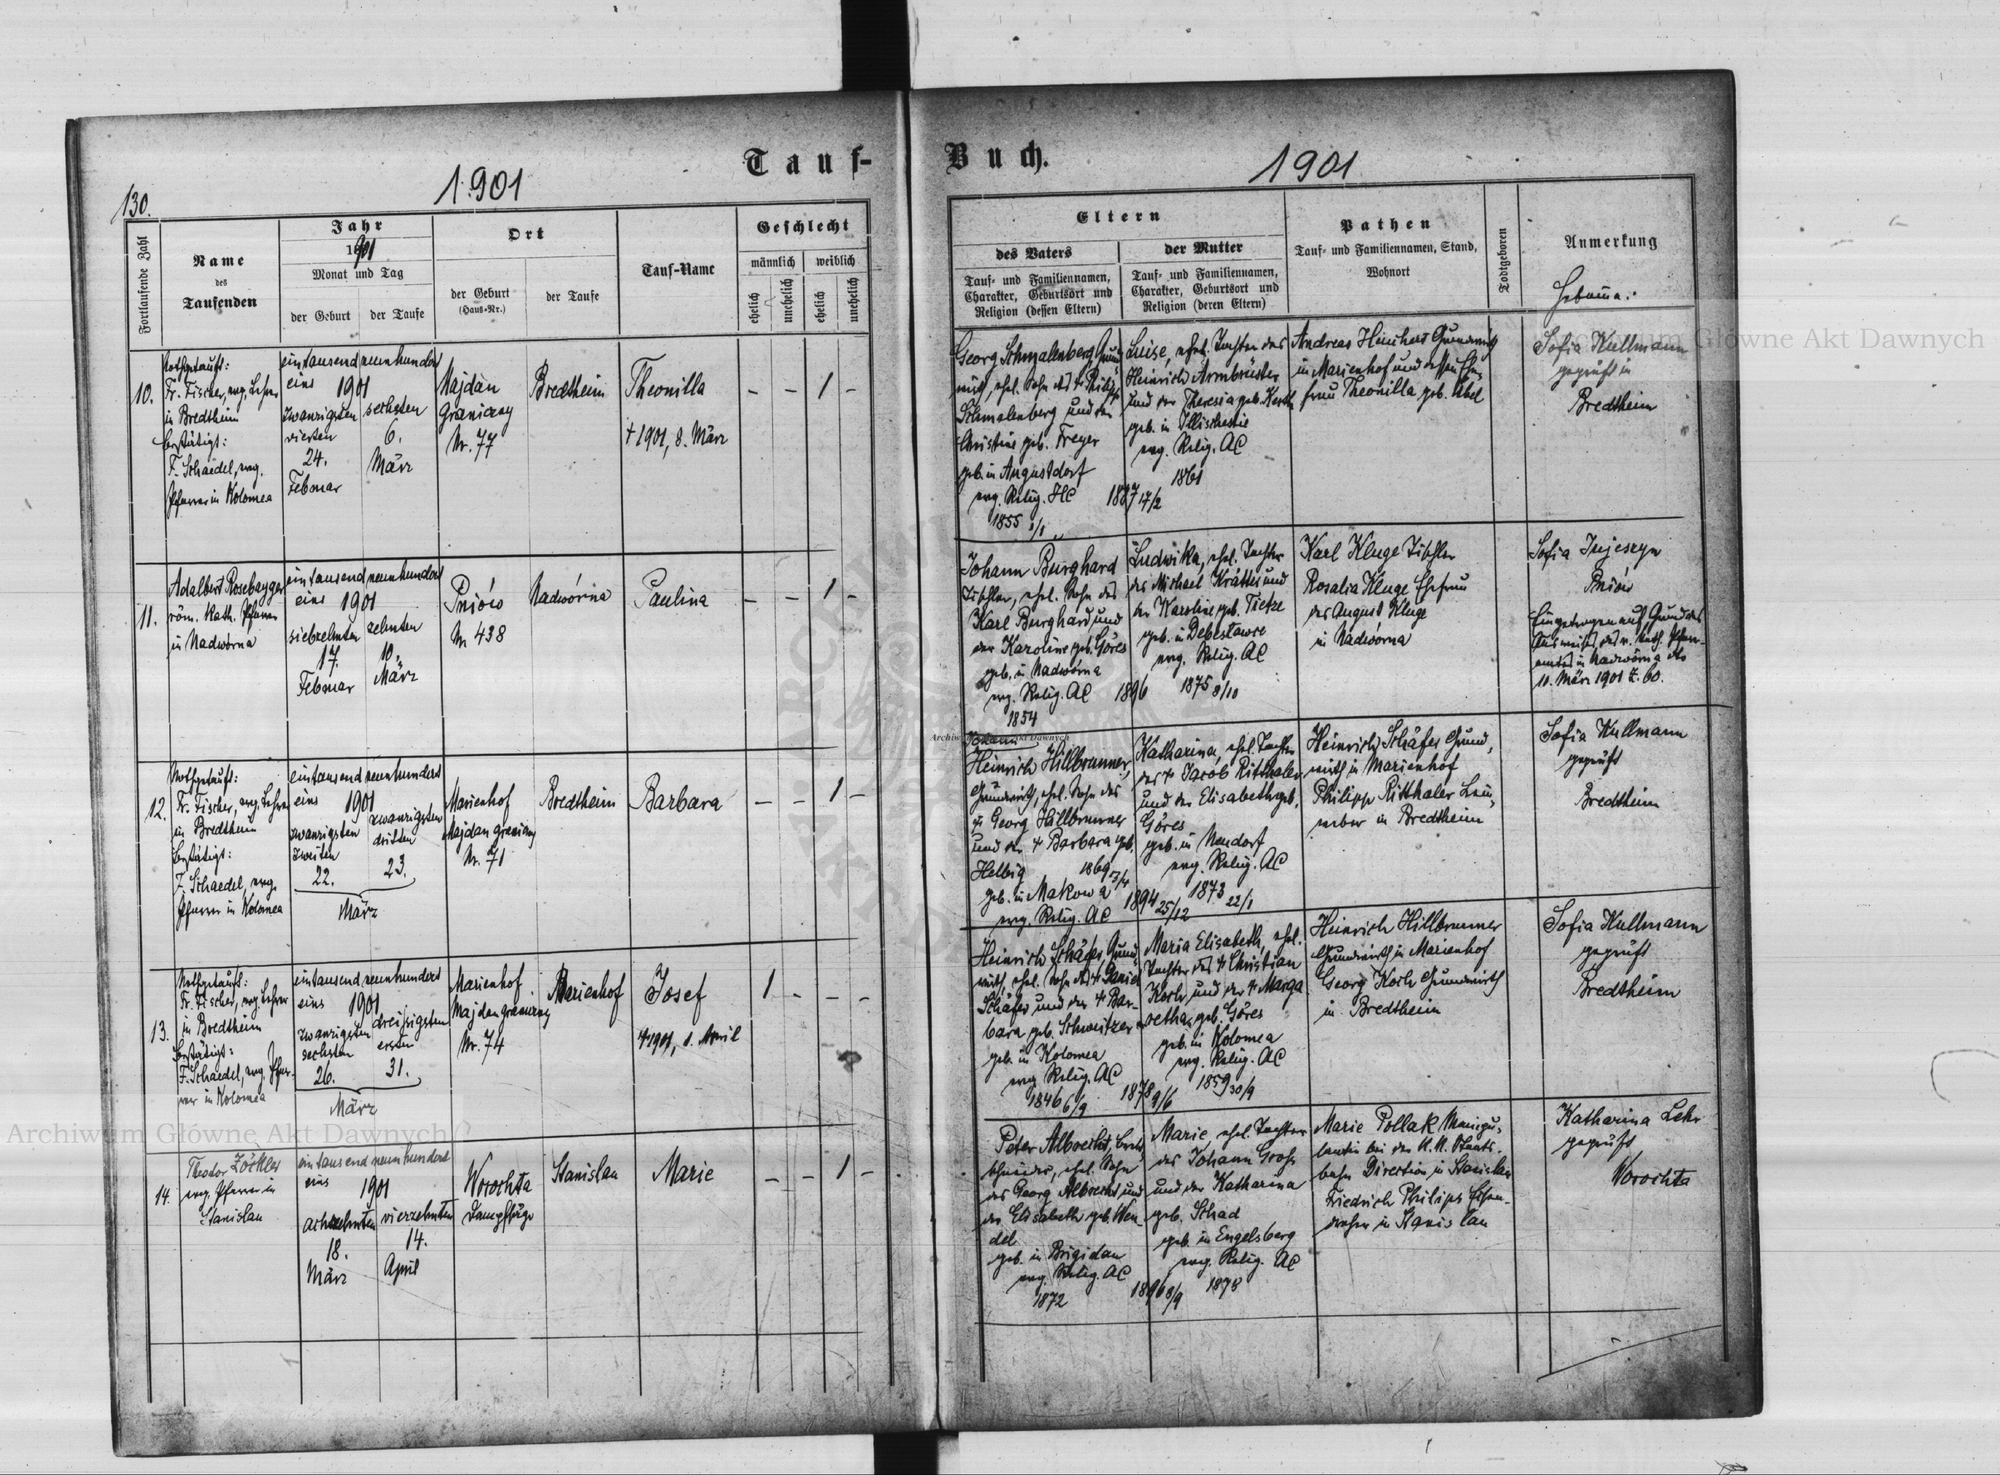 130.
1901
Tauf-
Fortlaufende Zahl
Name
des
Taufenden
Jahr
1901
Monat und Tag
der Geburt
der Taufe
Ort
der Geburt
(Haus-Nr.)
der Taufe
Tauf-Name
Geschlecht
männlich
weiblich
ehelich
unehelich
ehelich
unehelich
10.
Nothgetauft:
Fr. Fischer, evg. Lehrer
in Bredtheim
bestätigt:
F. Schaedel, evg.
Pfarrer in Kolomea
eintausend neunhundert
eins 1901
zwanzigsten
vierten
24.
Februar
sechsten
6.
März
Majdan
Graniczny
Nr. 77
Bredtheim
Theonilla
† 1901, 8. März
– – 1 –
11.
Adalbert Rosebayger
röm. kath. Pfarrer
in Nadworna
eintausend neunhundert
eins 1901
siebzehnten
17.
Februar
zehnten
10.
März
Pniów
Nr 438
Nadwórna
Paulina
– – 1 –
12.
Nothgetauft:
Fr. Fischer, evg. Lehrer
in Bredtheim
bestätigt:
F. Schaedel, evg.
Pfarrer in Kolomea
eintausend neunhundert
eins 1901
zwanzigsten
zweiten
22.
zwanzigsten
dritten
23.
März
Marienhof
Majdan graniczny
Nr. 71
Bredtheim
Barbara
– – 1 –
13.
Nothgetauft:
Fr. Fischer, evg. Lehrer
in Bredtheim
bestätigt:
F. Schaedel, evg. Pfar-
rer in Kolomea
eintausend neunhundert
eins 1901
zwanzigsten
sechsten
26.
dreissigsten
ersten
31.
März
Marienhof
Majdan graniczny
Nr. 74
Marienhof
Josef
† 1901, 1. April
1 – – –
14.
Theodor Zöckler
evg. Pfarrer in
Stanislau
eintausend neunhundert
eins 1901
achtzehnten
18.
März
vierzehnten
14.
April
Worochta
Dampfsäge
Stanislau
Marie
– – 1 –
Buch.
1901
Eltern
des Vaters
Tauf- und Familiennamen,
Charakter, Geburtsort und
Religion (dessen Eltern)
der Mutter
Tauf- und Familiennamen,
Charakter, Geburtsort und
Religion (deren Eltern)
Pathen
Tauf- und Familiennamen, Stand,
Wohnort
Todtgeboren
Anmerkung
Georg Schmalenberg, Grund-
wirt, ehel. Sohn des † Philipp
Schmalenberg und der
Christine geb. Freyer
geb. in Augustdorf
evg. Relig. HC
1855 1/1
Luise, ehel. Tochter des
Heinrich Armbrüster
und der Theresia geb. Kerth
geb. in
evg. Relig. AC
1861
17/2
Andreas Heuchert Grundwirth
in Marienhof und dessen Ehe-
frau Theonilla geb. Abel
Sofia Kullmann
geprüft in
Bredtheim
Johann Burghard
Tischler, ehel. Sohn des
Karl Burghard und
der Karoline geb. Göres
geb. in Nadworna
evg. Relig. AC
1854
1896
Ludwika, ehel. Tochter
des Michael Krättes und
der Karoline geb. Tietze
geb. in Debeslawce
evg. Relig. AC
1875 8/10
Karl Kluge Tischler
Rosalia Kluge Ehefrau
des August Kluge
in Nadwórna
Sofia
Pniów
Eingetragen auf Grund des
Ausweises des r. kath. Pfarr-
amtes in Nadwórna dto
10. März 1901 Z. 60.
Johann
Heinrich Hillbrunner,
Grundwirth, ehel. Sohn des
† Georg Hillbrunner
und der † Barbara geb.
Helbig 1869 3/4
geb. in Makowa
evg. Relig. AC
1894 25/12
Katharina, ehel. Tochter
des † Jacob Ritthaler
und der Elisabeth geb.
Göres
geb. in Neudorf
evg. Relig. AC
1873 22/1
Heinrich Schäfer Grund-
wirth in Marienhof
Philipp Ritthaler
in Bredtheim
Sofia Kullmann
geprüft
Bredtheim
Heinrich Schäfer, Grund-
wirth, ehel. Sohn des † Daniel
Schäfer und der † Bar-
bara geb. Schweitzer
geb. in Kolomea
evg. Relig. AC
1846 6/9
1878 9/6
Maria Elisabeth, ehel.
Tochter des † Christian
Koch, und der † Marga
retha geb. Göres
geb. in Kolomea
evg. Relig. AC
1859 30/9
Heinrich Hillbrunner
Grundwirth in Marienhof
Georg Koch Grundwirth
in Bredtheim
Sofia Kullmann
geprüft
Bredtheim
Peter Albrecht, Brett-
schneider, ehel. Sohn
des Georg Albrecht und
der Elisabeth geb. Wen
del
geb. in Brigidau
evg. Relig. AC
1872
1896 8/9
Marie, ehel. Tochter
des Johann Grohs
und der Katharina
geb. Schad
geb. in Engelsberg
evg. Relig. AC
1878
Marie Pollak Manipu-
lantin bei der K. K. Staats-
bahn Direction in Stanislau
Friedrich Philipps Eisen-
dreher in Stanislau
Katharina Lehr
geprüft
Worochta
Archiwum Główne Akt Dawnych